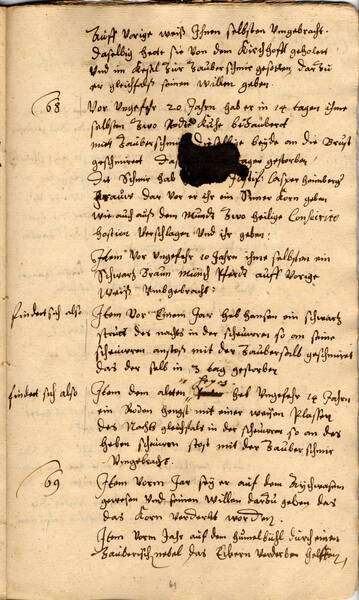 Auff vorige weiß Ihnen selbsten umgebracht.
daselbig hette sie von dem Kirchhoff geholett
und im Kessel zur Zauberschmir gesotten darzu
er gleichfalß seinen willen geben
68
Vor Ungefehr 20 Jahrn hab er in 14 tagen ihme
selbsten Zwo Rodte Kühe bezaubert
mitt Zauberschmir dieselbige beyde an die Brust
geschmirett das tager gestorben
Die Schmir hab Justif: Casper heimbergs
frauw dar vor er ihr ein Simer Korn geben
wie auch auß dem Mundt Zwo heilige
hostien verschlagen und ihr geben:
Item Vor Ungefehr 10 Jahrn ihme selbsten ein
Schwartz Braun Münch Pferdt auff vorige
weiß umbgebracht:
findett sich also
Item Vor Einem Jar heb hansen ein schwartz
des nachts in der scheuwren so an seine
scheuwren anstoß mit der Zaubersalb geschmirett
das der selb in 3 tag gestorben
findett sich also
Item dem alten heb Ungefehr 14 Jahrn
ein Roden hengst mit einer weisen Plassen
des Nachts gleichfals in der scheuwren so an des
heben scheuwren stost mit der Zauber schmir
Umgebracht.
69
Item Vorm Jar sey er auf dem
gewesen und seinen Willen darzu geben das
das Korn verderbt worden.
Item Vorm Jahr auf dem humelbühl durch einen
Zauberisch nebel das verderben helffen,
61